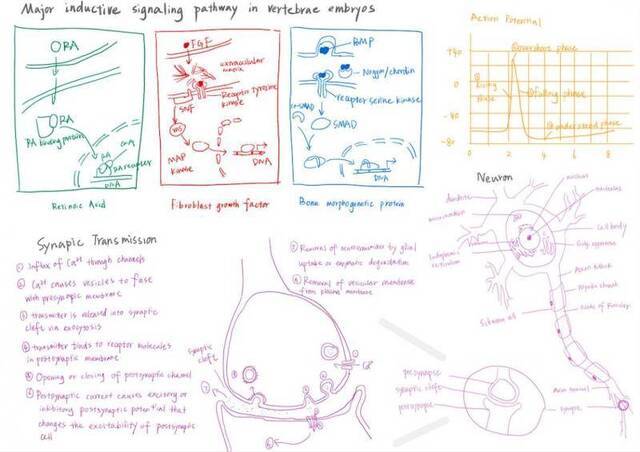 Major inductive signaling pathway in vertebrae embryos
RA
RA
RA binding protein
RA
RA receptor
DNA
Retinoic Acid
FGF
extracellular
matrix
Receptor tyrosine
kinase
MAP
kinase
DNA
Fibroblast growth factor
BMP
Nogin/chordin
receptor serine kinase
co-SMAD
SMAD
DNA
Bone morphogenetic protein
Action Potential
+40
0
-40
-80
0
2
4
6
8
overshoot phase
rising
phase
falling phase
undershoot phase
Synapic Transmission
① Influx of Ca²⁺ through channels
② Ca²⁺ causes vesicles to fuse
with presynapic membrane
③ transmitter is released into synaptic
cleft via exocytosis
④ transmitter binds to receptor molecules
in postsynaptic membrane
⑤ Opening or closing of postsynaptic channel
⑥ Postsynaptic current causes excitory or
inhibitory postsynaptic potential that
changes the excitability of postsynaptic
cell
⑦ Removal of neurotransmitter by glial
uptake or enzymatic degradation
⑧ Removal of vesicular membrane
from plasma membrane
synaptic
cleft
Neuron
nucleus
nucleolus
dendrite
mitochondrion
cell body
Golgi apparatus
Endoplasmic
reticulum
Axon hillock
Myelin sheath
Node of Ranvier
Schwann cell
Axon terminal
synapse
presynapse
synaptic cleft
postsynapse